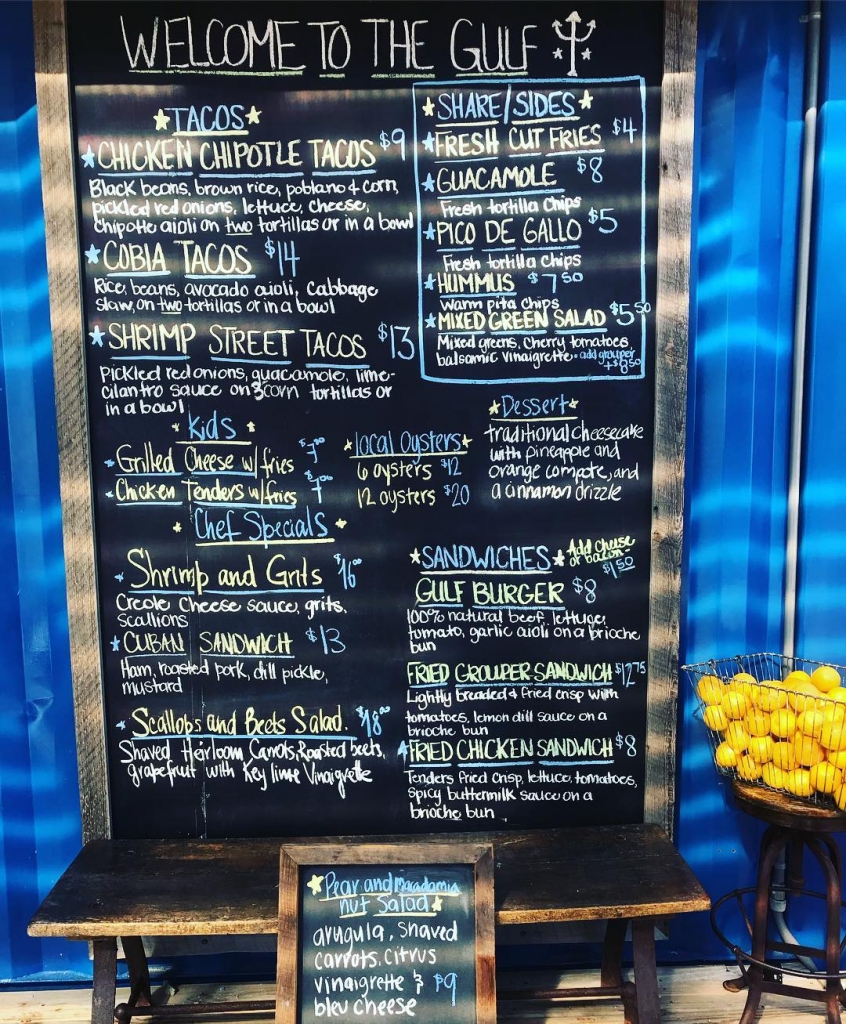 WELCOME TO THE GULF
TACOS
CHICKEN CHIPOTLE TACOS $9
Black beans, brown rice, poblano & corn,
pickled red onions, lettuce, cheese,
chipotle aioli on two tortillas or in a bowl
COBIA TACOS $14
Rice, beans, avocado aioli, Cabbage
slaw, on two tortillas or in a bowl
SHRIMP STREET TACOS $13
Pickled red onions, guacamole, lime-
cilantro sauce on 3 corn tortillas or
in a bowl
SHARE/SIDES
FRESH CUT FRIES $4
GUACAMOLE $8
Fresh tortilla chips
PICO DE GALLO $5
Fresh tortilla chips
HUMMUS $7 50
warm pita chips
MIXED GREEN SALAD $5 50
Mixed greens, cherry tomatoes
balsamic vinaigrette - add grouper
+$8 50
Kids
Grilled Cheese w/ fries $7
Chicken Tenders w/ fries $7
local oysters
6 oysters $12
12 oysters $20
Dessert
traditional cheesecake
with pineapple and
orange compote, and
a cinnamon drizzle
Chef Specials
Shrimp and Grits $16
Creole Cheese sauce, grits,
scallions
CUBAN SANDWICH $13
Ham, roasted pork, dill pickle,
mustard
Scallops and Beets Salad. $18
Shaved Heirloom Carrots, Roasted beets,
grapefruit with Key lime Vinaigrette
SANDWICHES
Add Cheese
or bacon-
$1.50
GULF BURGER $8
100% natural beef, lettuce,
tomato, garlic aioli on a brioche
bun
FRIED GROUPER SANDWICH $12 75
Lightly breaded & fried crisp with
tomatoes, lemon dill sauce on a
brioche bun
FRIED CHICKEN SANDWICH $8
Tenders fried crisp, lettuce, tomatoes,
spicy buttermilk sauce on a
brioche bun
Pear and macadamia
nut Salad
arugula, shaved
carrots, citrus
vinaigrette & $9
bleu cheese